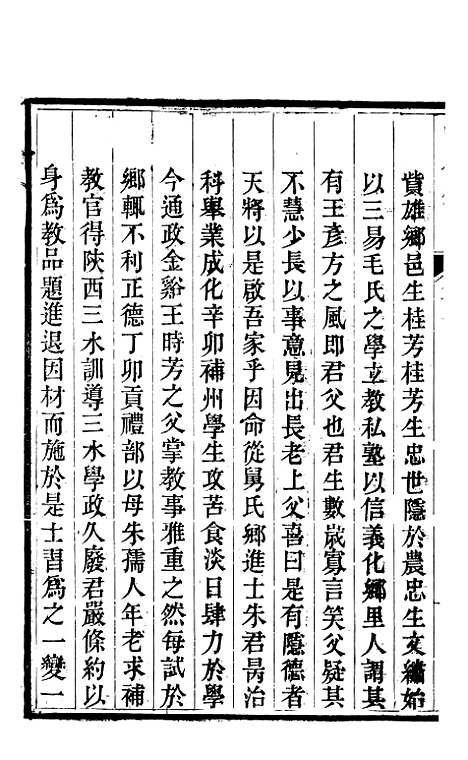 貲雄鄉邑生桂芳桂芳生忠世隱於農忠生文繡始
以三易毛氏之學立教私塾以信義化鄉里人謂其
有王彥方之風即君父也君生數歲寡言笑父疑其
不慧少長以事意見出長老上父喜曰是有隱德者
天將以是啟吾家乎因命從舅氏鄉進士朱君昺治
科舉業成化辛卯補州學生攻苦食淡日肆力於學
今通政金谿王時芳之父掌教事雅重之然每試於
鄉輒不利正德丁卯貢禮部以母朱孺人年老求補
教官得陝西三水訓導三水學政久廢君嚴條約以
身為教品題進退因材而施於是士習為之一變一